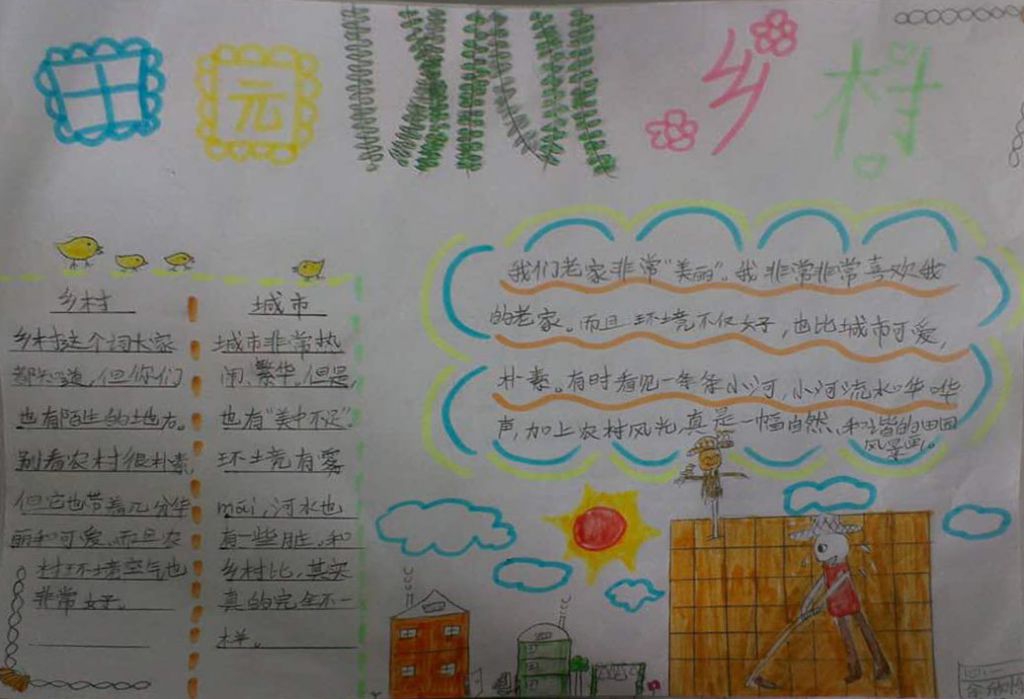 田园
乡村
乡村
乡村这个词大家
都知道,但你们
也有陌生的地方。
别看农村很朴素,
但它也带着几分华
丽和可爱、而且农
村环境空气也
非常好。
城市
城市非常热
闹、繁华。但是,
也有“美中不足”
环境有雾
mái,河水也
有一些脏。和
乡村比,其实
真的完全不一
样。
我们老家非常“美丽”。我非常非常喜欢我
的老家。而且环境不仅好,也比城市可爱,
朴素。有时看见一条条小河,小河流水哗哗
声,加上农村风光真是一幅自然、和谐的田园
风景画。